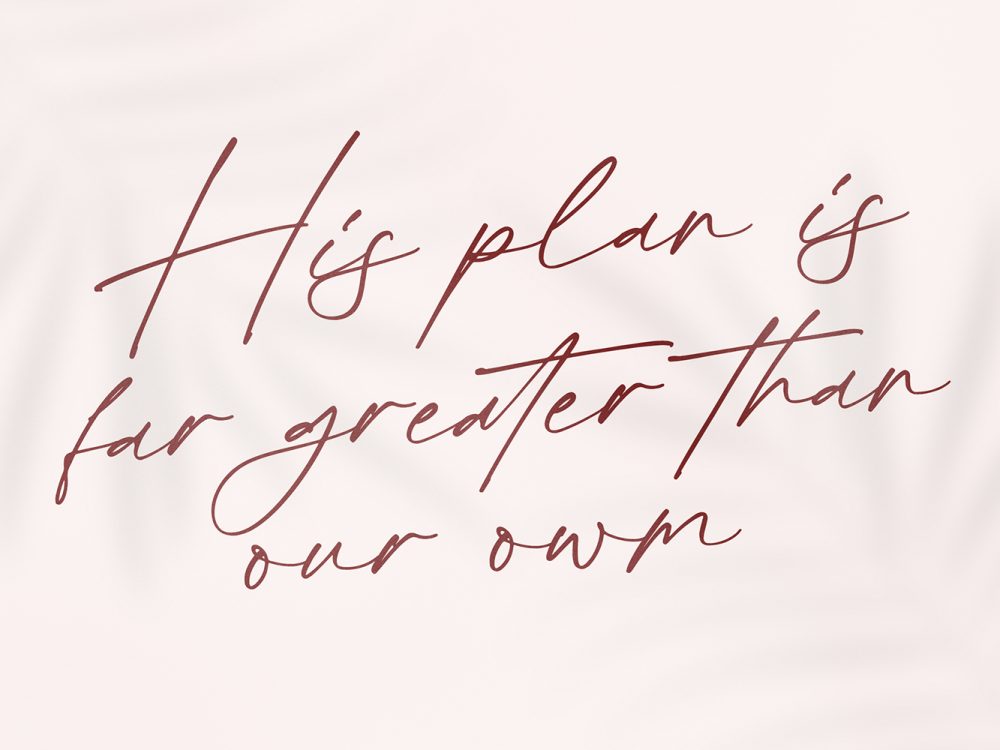 His plan is
far greater than
our own